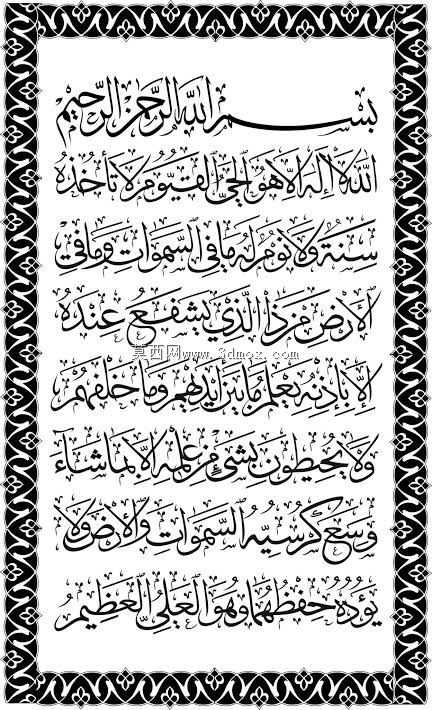 بِسْمِ اللَّهِ الرَّحْمَٰنِ الرَّحِيمِ
اللَّهُ لَا إِلَٰهَ إِلَّا هُوَ الْحَيُّ الْقَيُّومُ لَا تَأْخُذُهُ
سِنَةٌ وَلَا نَوْمٌ لَهُ مَا فِي السَّمَوَاتِ وَمَا فِي
الْأَرْضِ مَنْ ذَا الَّذِي يَشْفَعُ عِنْدَهُ
莫西网www.3dmox.com
إِلَّا بِإِذْنِهِ يَعْلَمُ مَا بَيْنَ أَيْدِيهِمْ وَمَا خَلْفَهُمْ
وَلَا يُحِيطُونَ بِشَيْءٍ مِنْ عِلْمِهِ إِلَّا بِمَا شَاءَ
وَسِعَ كُرْسِيُّهُ السَّمَوَاتِ وَالْأَرْضَ وَلَا
يَؤُدُهُ حِفْظُهُمَا وَهُوَ الْعَلِيُّ الْعَظِيمُ